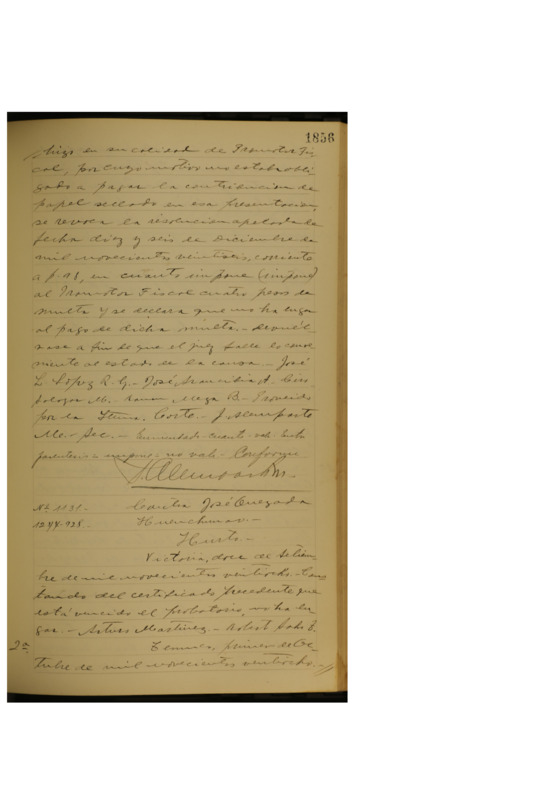 1856
hizo en su calidad de Promotor Fis-
cal, por cuyo motivo no estaba obli-
gado a pagar la contribucion de
papel sellado en esa presentacion,
se revoca la resolucion apelada de
fecha diez y seis de Diciembre de
mil novecientos veintiseis, corriente
a f. 98, en cuanto impone (impone)
al Promotor Fiscal cuatro pesos de
multa y se declara que no ha lugar
al pago de dicha multa.- Devuél-
vase a fin de que el juez falle lo conve-
niente al estado de la causa.- José
L. López R. G.- José Arancibia A.
M.- Ramon Meza B.- Proveido
por la Iltma. Corte.- J. Alemparte
M.- Sec.- Enmendado-cuento-vale. Entre
parentesis-impone-no vale. Conforme

Nº 1131.- Contra José Quezada
1244-928.-
Hurto.-
Victoria, doce de Setiem-
bre de mil novecientos veintiocho.- Cons-
tando del certificado precedente que
está vencido el probatorio, no ha lu-
gar.- Arturo Martinez.- Robert
2ª Temuco, primero de Oc-
tubre de mil novecientos veintiocho.-